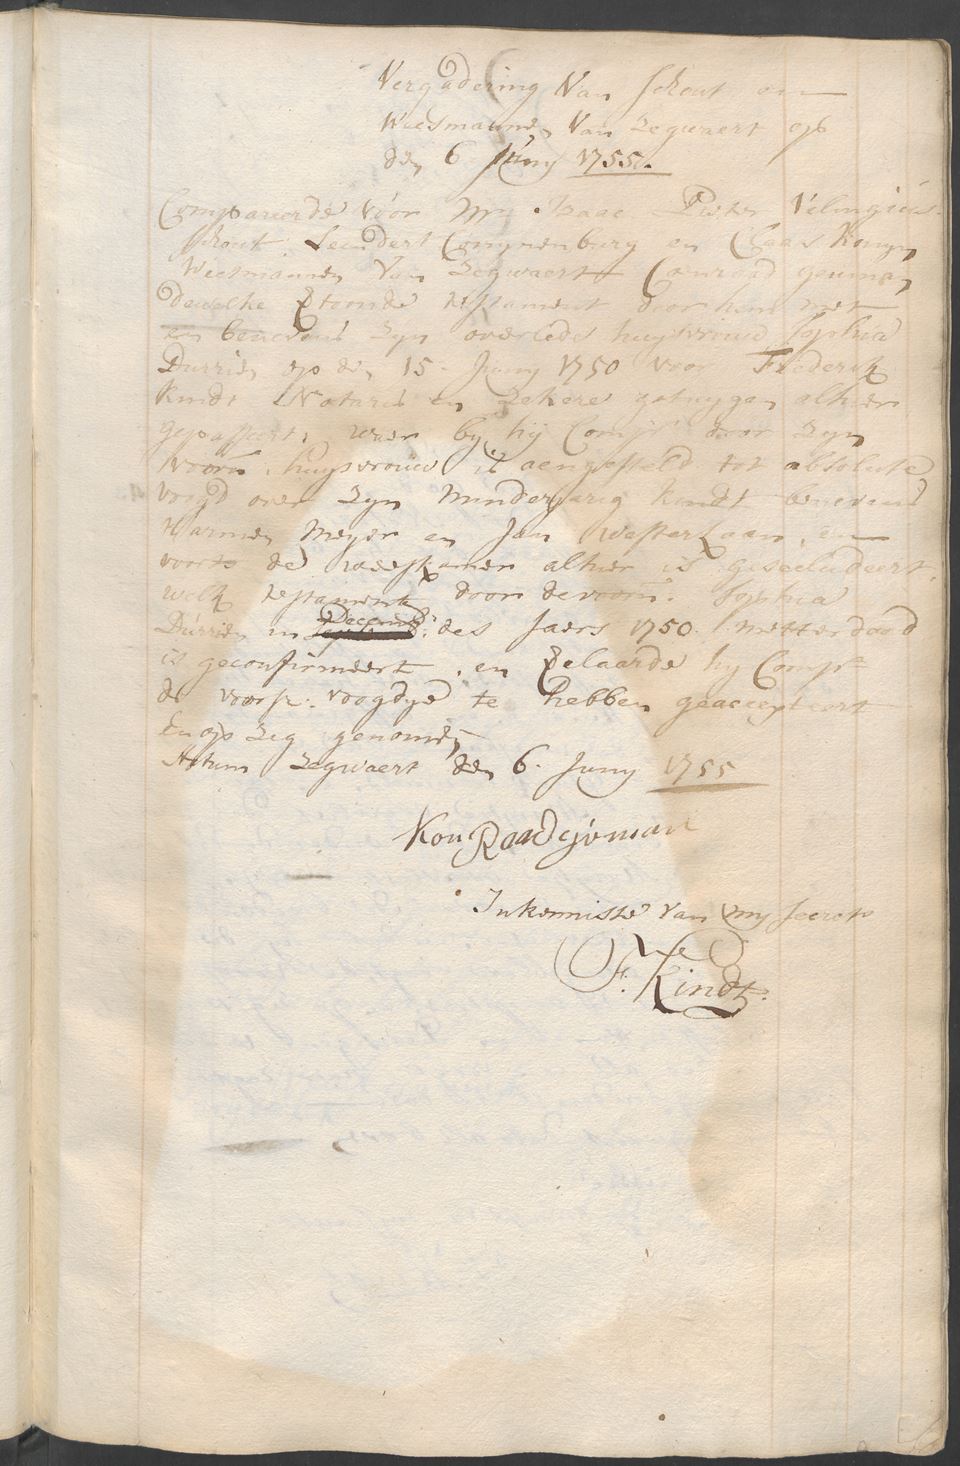 Vergadering Van Schout en
Weesmannen Van Zegwaert op
den 6 Juny 1755.
Compareerde voor Mr. Isaac Pieter Velingius
schout Leendert Conynenburg en Claas Konyn
Weesmannen Van Zegwaert Coenraad geuman
dewelke Etoonde testament door hem met
en benevens Zyn overlede huysvrouw Sophia
Durrien op den 15 Juny 1750 voor Frederik
Kindt Notaris en Zekere getuygen alhier
gepasseert, waer by hij Compt. door Zyn
voorn. huysvrouw is aengesteld tot absolute
voogd over Zyn Minderjarig Kindt benevens
Harmen Meyer en Jan Westerlaan, en
voorts de weeskamer alhier is geseclideert,
welk testament door de voorn. Sophia
Durrien in Decemb: des Jaers 1750 metterdood
is geconfirmeert, en Eclaarde hy Compt.
de voorsz. voogdye te hebben geaccepteert
En op Zig genomen
Actum Zegwaert den 6. Juny 1755
KonRaad gjoman
In kennisse van my Secrets
F. Kindt.